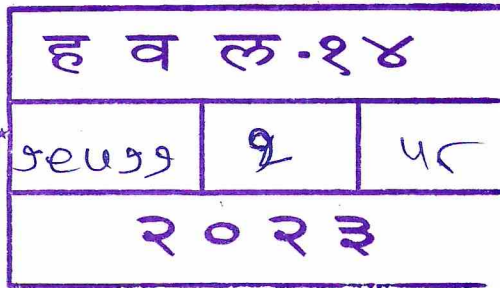 ह व ल - १४
१९५११ ५८
२०२३